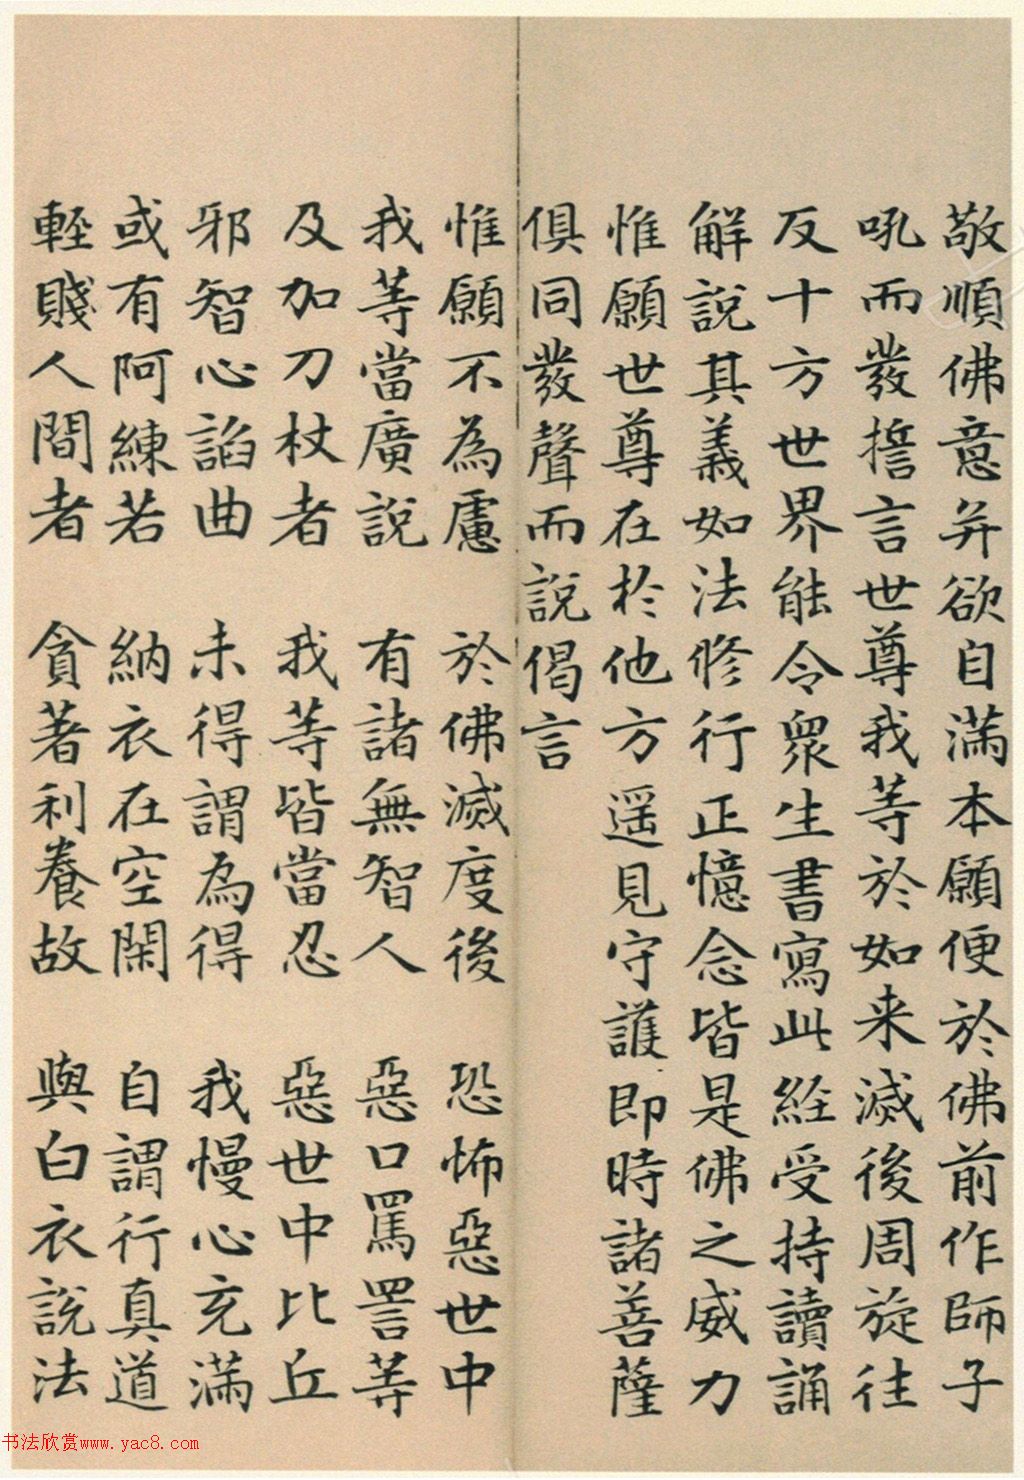 敬順佛意并欲自滿本願便於佛前作師子
吼而發誓言世尊我等於如来滅後周旋往
反十方世界能令眾生書寫此經受持讀誦
解說其義如法修行正憶念皆是佛之威力
惟願世尊在於他方遥見守護即時諸菩薩
俱同發聲而說偈言
惟願不為慮 於佛滅度後 恐怖惡世中
我等當廣說 有諸無智人 惡口罵詈等
及加刀杖者 我等皆當忍 惡世中比丘
邪智心諂曲 未得謂為得 我慢心充滿
或有阿練若 納衣在空閑 自謂行真道
輕賤人間者 貪著利養故 與白衣說法
书法欣赏www.yac8.com